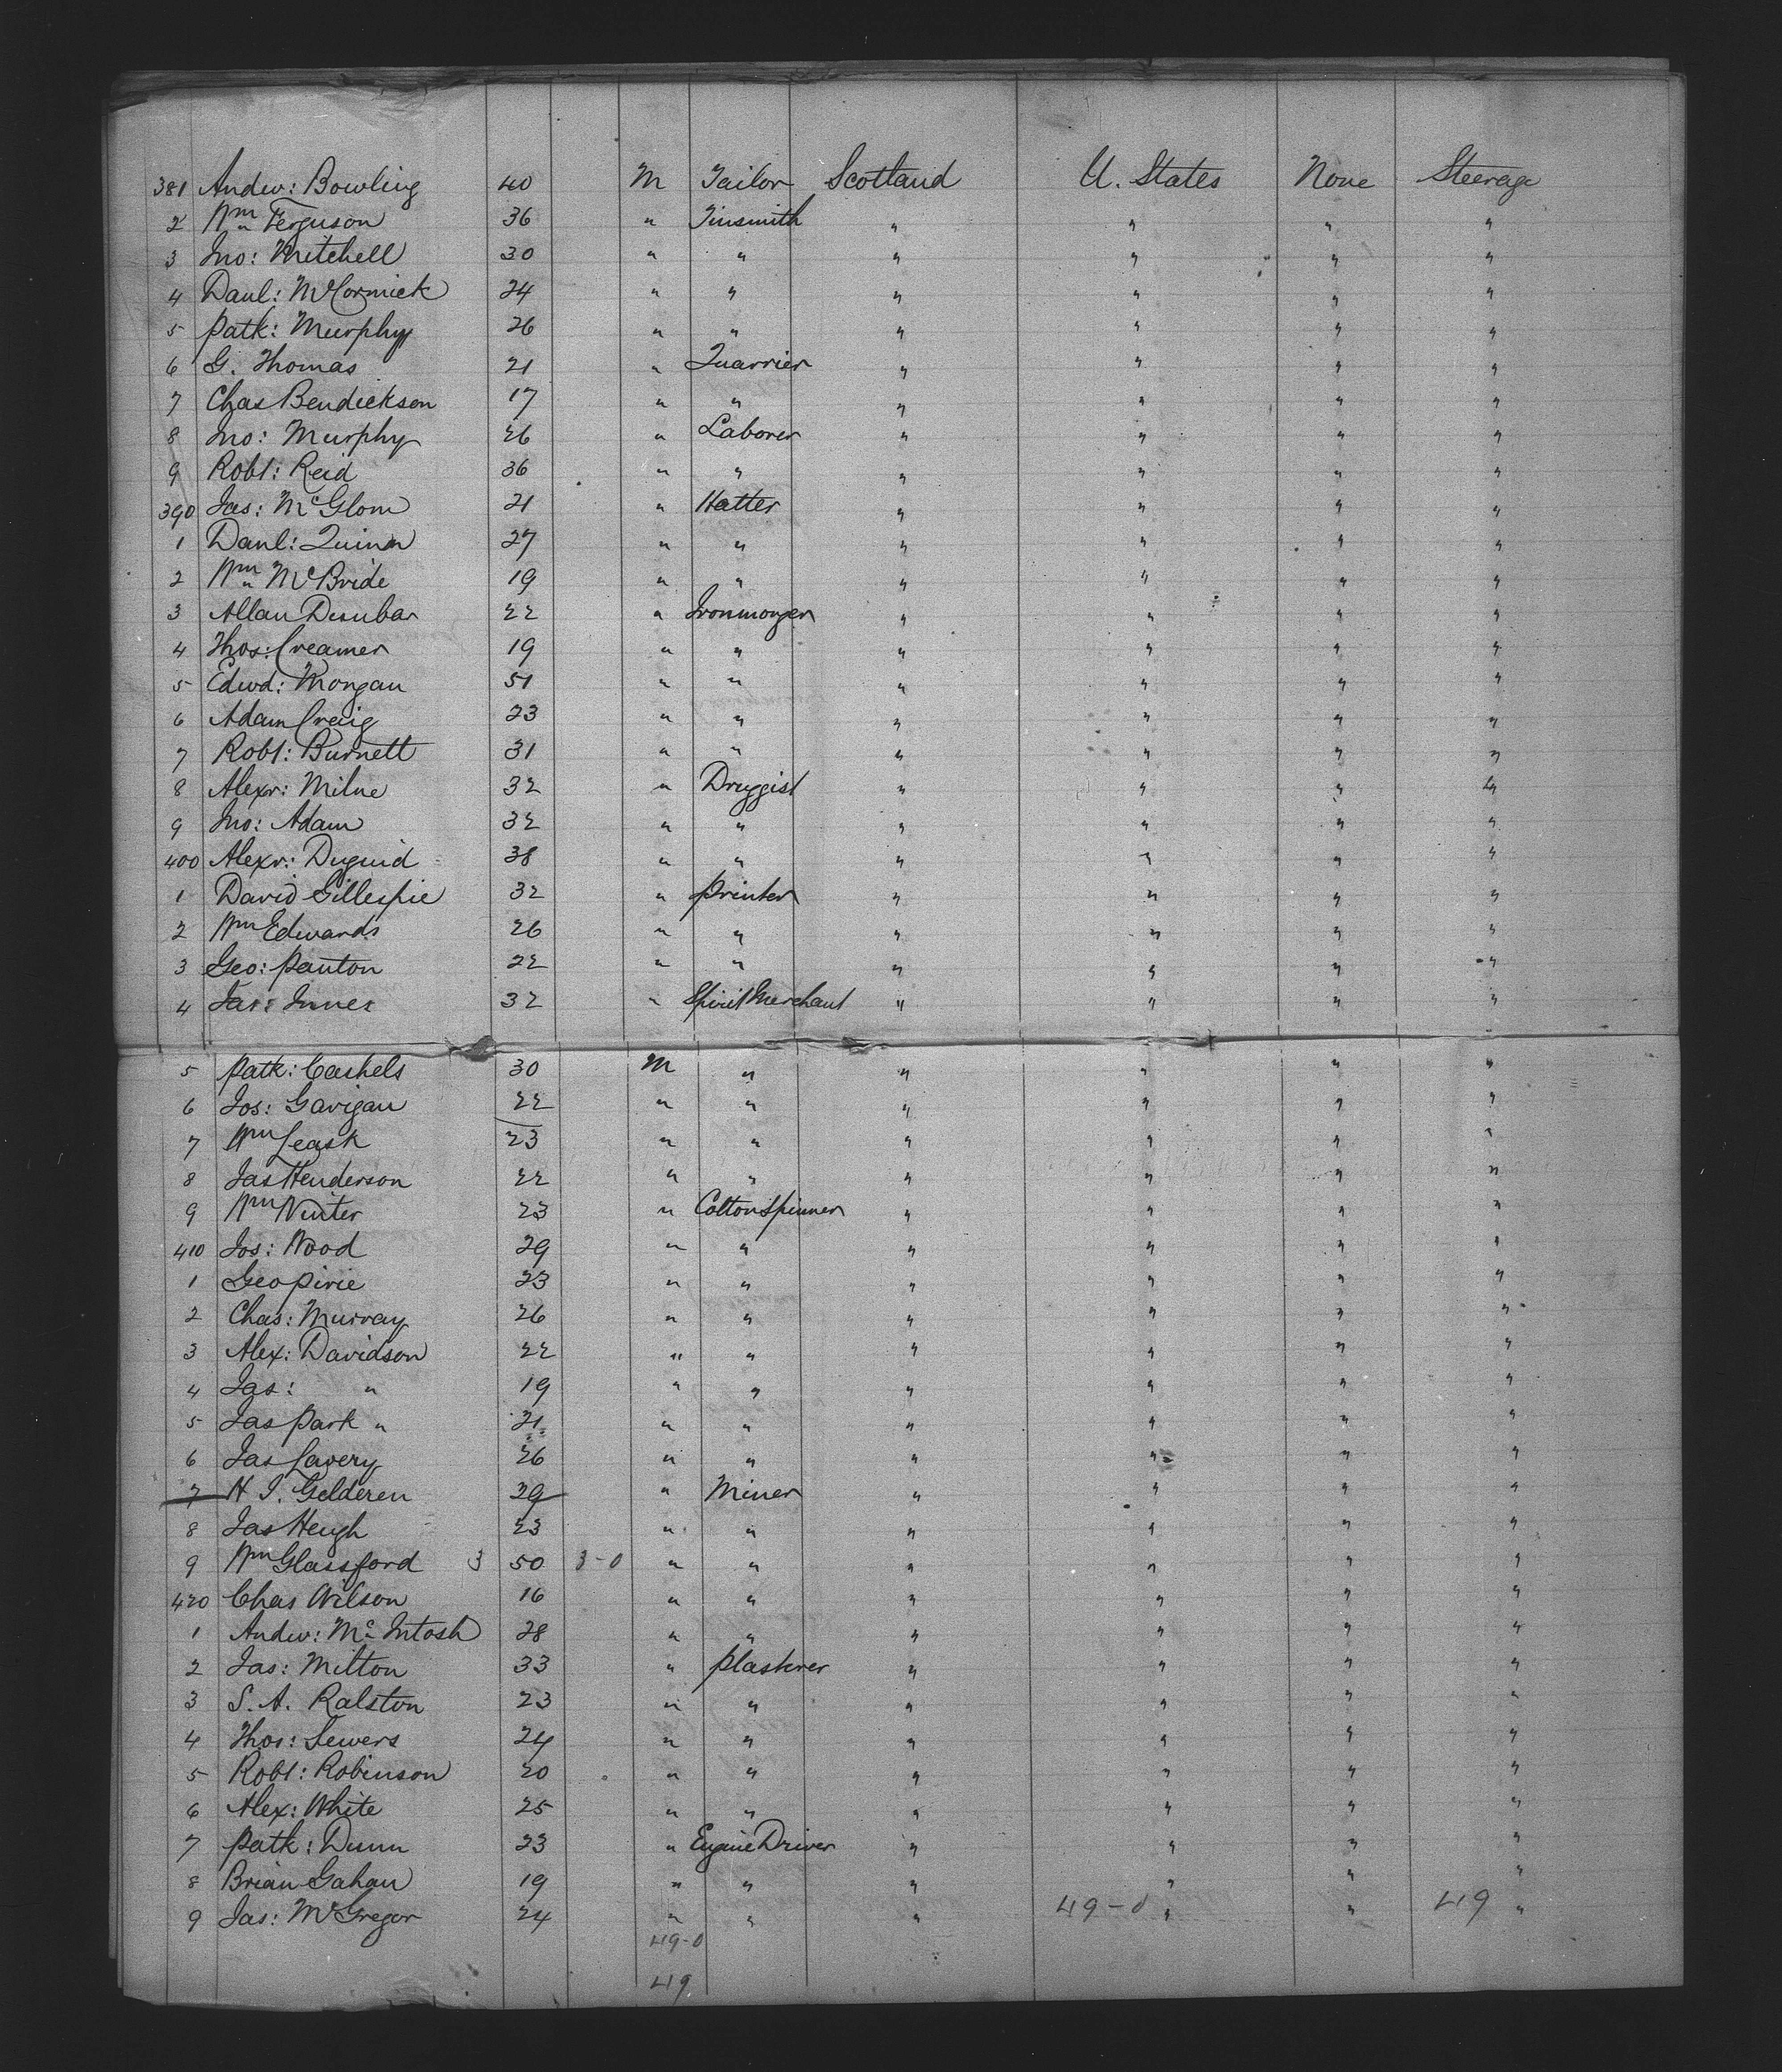 381 Andw: Bowling 40 M Tailor Scotland U. States None Steerage
2 Wm Ferguson 36 " Tinsmith " " " "
3 Jno: Mitchell 30 " " " " " "
4 Danl: McCormick 24 " " " " " "
5 Patk: Murphy 26 " " " " " "
6 G. Thomas 21 " Quarrier " " " "
7 Chas Bendickson 17 " " " " " "
8 Jno: Murphy 26 " Laborer " " " "
9 Robt: Reid 36 " " " " " "
390 Jas: McGlom 21 " Hatter " " " "
1 Danl: Quinn 27 " " " " " "
2 Wm McBride 19 " " " " " "
3 Allan Dunbar 22 " Ironmonger " " " "
4 Thos: Creamer 19 " " " " " "
5 Edwd: Mongan 51 " " " " " "
6 Adam Craig 23 " " " " " "
7 Robt: Burnett 31 " " " " " "
8 Alexr: Milne 32 " Druggist " " " "
9 Jno: Adam 32 " " " " " "
400 Alexr: Duguid 38 " " " " " "
1 David Gillespie 32 " Printer " " " "
2 Wm Edwards 26 " " " " " "
3 Geo: Panton 22 " " " " " "
4 Jas: Innes 32 " Spirit Merchant " " " "
5 Patk: Cashels 30 M " " " " "
6 Jos: Gavigan 22 " " " " " "
7 Wm Leask 23 " " " " " "
8 Jas Henderson 22 " " " " " "
9 Wm Winter 23 " Cotton Spinner " " " "
410 Jos: Wood 29 " " " " " "
1 Geo Pirie 23 " " " " " "
2 Chas: Murray 26 " " " " " "
3 Alex: Davidson 22 " " " " " "
4 Jas: " 19 " " " " " "
5 Jas Park " 21 " " " " " "
6 Jas Lavery 26 " " " " " "
7 H J. Gelderen 29 " Miner " " " "
8 Jas Heugh 23 " " " " " "
9 Wm Glassford 3 50 3-0 " " " " " "
420 Chas Wilson 16 " " " " " "
1 Andw: McIntosh 28 " " " " " "
2 Jas: Milton 33 " Plasterer " " " "
3 S. A. Ralston 23 " " " " " "
4 Thos: Sewers 24 " " " " " "
5 Robt: Robinson 20 " " " " " "
6 Alex: White 25 " " " " " "
7 Patk: Dunn 23 " Engine Driver " " " "
8 Brian Gahan 19 " " " " " "
9 Jas: McGregor 24 " " " 49-0 " " 49 "
49-0
49